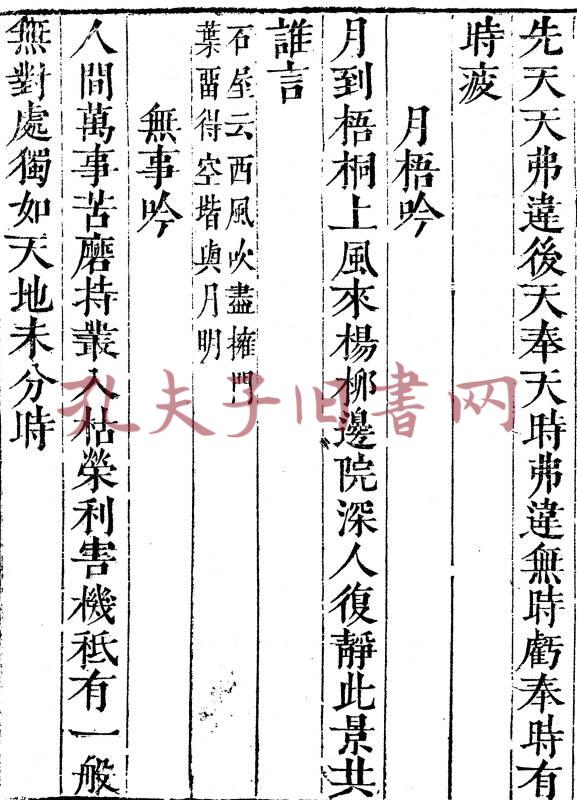 先天天弗違後天奉天時弗違無時虧奉時有
時疲
月梧吟
月到梧桐上風來楊柳邊院深人復靜此景共
誰言
石屋云西風吹盡擁門
葉畱得空堦與月明
無事吟
人間萬事苦磨持叢入枯榮利害機秪有一般
無對處獨如天地未分時
孔夫子旧书网